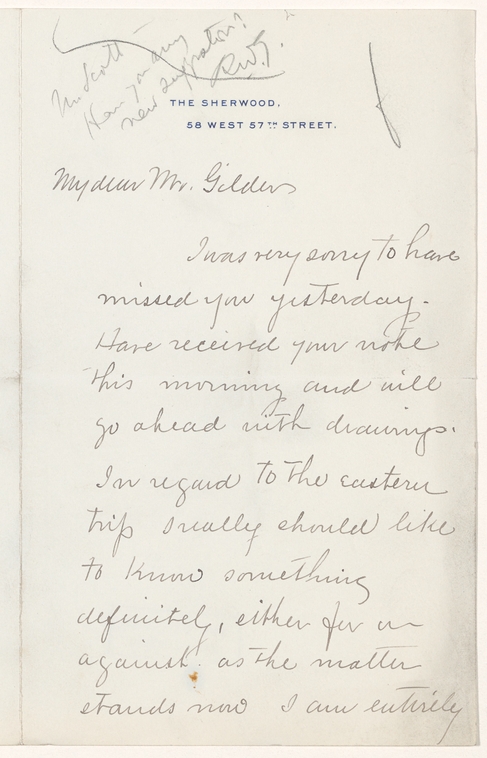 Mr. Scott
Have you any
new suggestion?
R.W.G.
THE SHERWOOD,
58 WEST 57TH STREET.
My dear Mr. Gilder
I was very sorry to have
missed you yesterday.
Have received your note
this morning and will
go ahead with drawings.
In regard to the eastern
trip I really should like
to know something
definitely, either for or
against. as the matter
stands now I am entirely